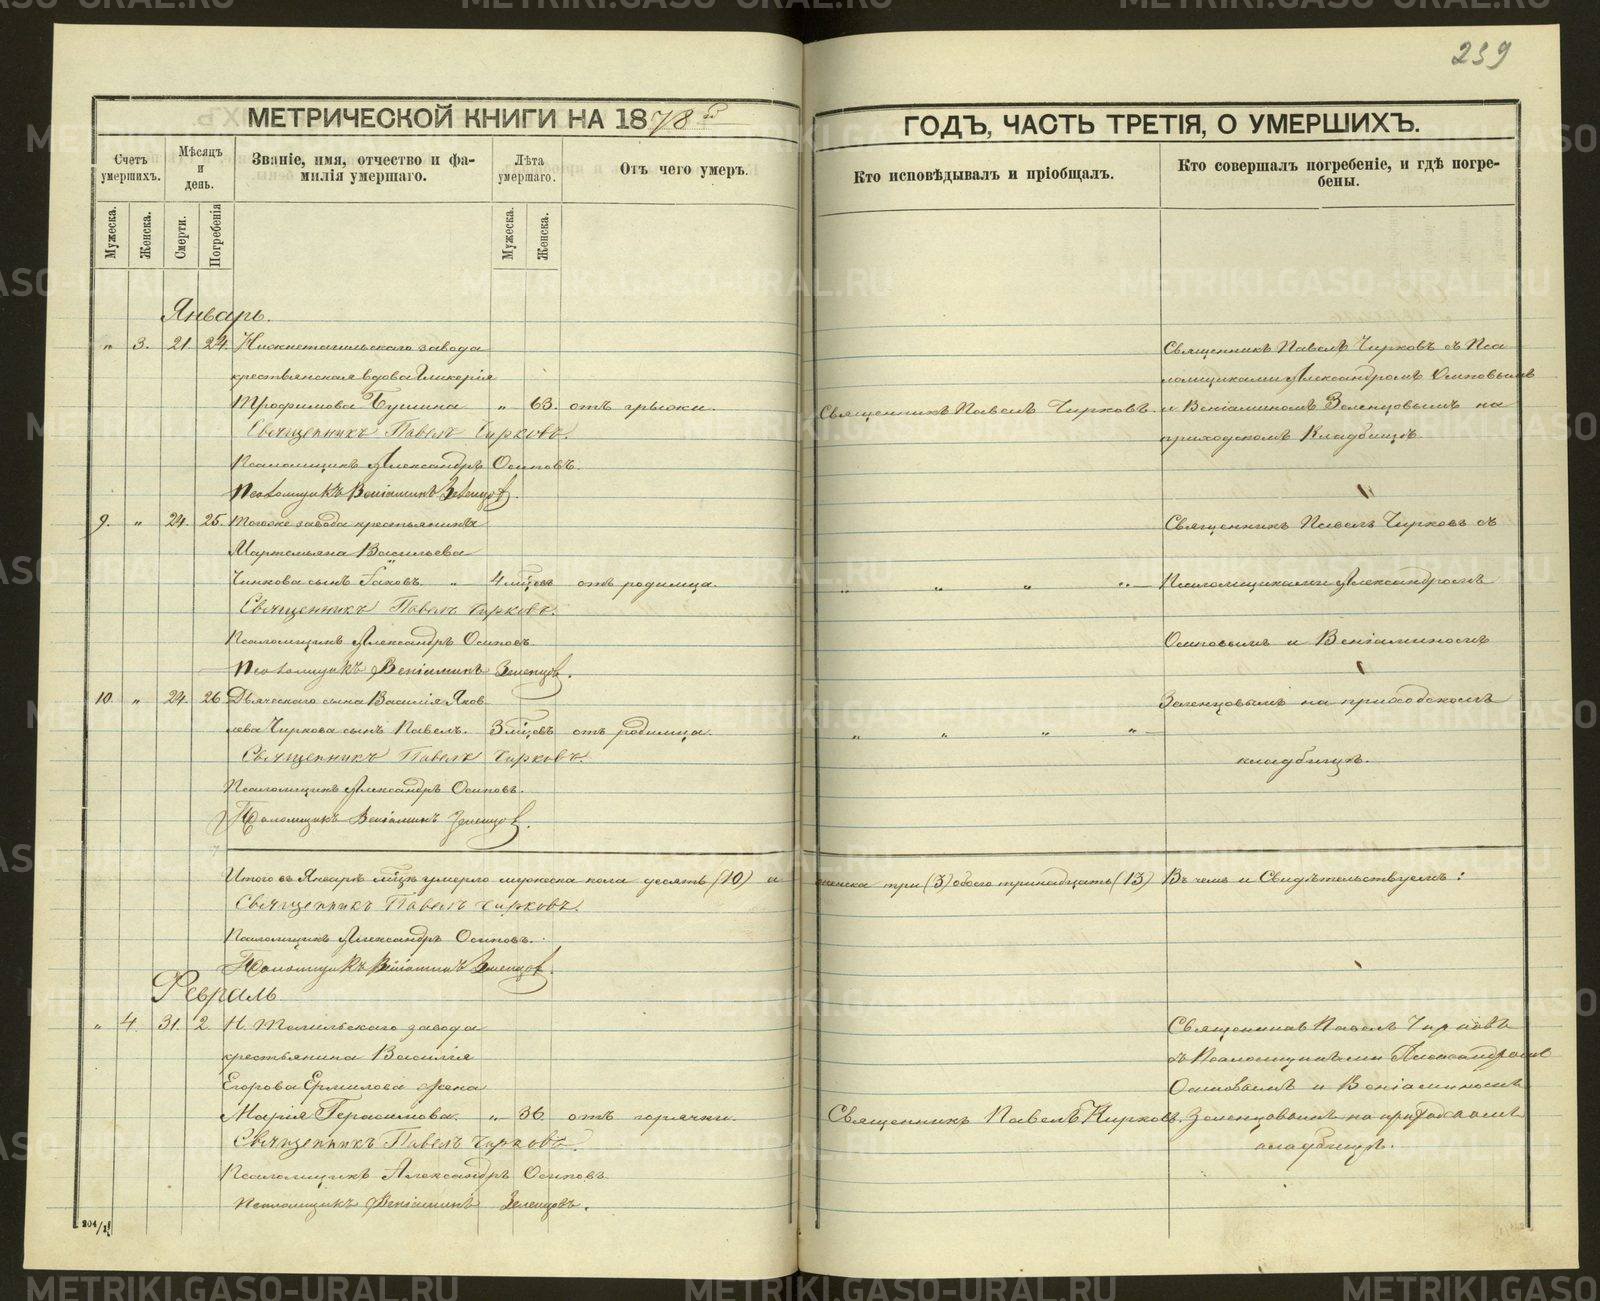 239
МЕТРИЧЕСКОЙ КНИГИ НА 1878 й
ГОДЪ, ЧАСТЬ ТРЕТІЯ, О УМЕРШИХЪ.
Счетъ умершихъ.
Мѣсяцъ и день.
Званіе, имя, отчество и фа-
милія умершаго.
Лѣта умершаго.
Отъ чего умеръ.
Кто исповѣдывалъ и пріобщалъ.
Кто совершалъ погребеніе, и гдѣ погре-
бены.
Мужеска.
Женска.
Смерти.
Погребенія
Мужеска.
Женска.
Январь.
" 3. 21. 24. Нижнетагильскаго завода
крестьянская вдова Гликерія
Трофимова " 63. отъ грыжи.
Священникъ Павелъ Чирковъ.
Священникъ Павелъ Чирковъ съ Пса
ломщиками Александромъ Осиповымъ
и Веніаминомъ Зеленцовымъ на
приходскомъ кладбищѣ.
Священникъ Павелъ Чирковъ.
Псаломщикъ Александръ Осиповъ.
Псаломщикъ Веніаминъ Зеленцов.
9. " 24. 25. Тогоже завода крестьянина
Мартемьяна Васильева
сынъ " 4 мѣсяцъ отъ родимца.
" " " "
Священникъ Павелъ Чирковъ съ
Псаломщиками Александромъ
Осиповымъ и Веніаминомъ
Зеленцовымъ на приходскомъ
кладбищѣ.
Священникъ Павелъ Чирковъ.
Псаломщикъ Александръ Осиповъ.
Псаломщикъ Веніаминъ Зеленцов.
10. " 24. 26 Дьяческаго сына Василія Яков
лева Чиркова сынъ Павелъ. 3 мѣсцевъ отъ родимца.
" " " "
Священникъ Павелъ Чирковъ
Псаломщикъ Александръ Осиповъ.
Псаломщикъ Веніаминъ Зеленцов.
Итого въ Январѣ мѣсяцѣ умерло мужеска пола десять (10) а женска три (3) обоего тринадцать (13) Въ чемъ и Свидѣтельствуемъ:
Священникъ Павелъ Чирковъ.
Псаломщикъ Александръ Осиповъ.
Псаломщикъ Веніаминъ Зеленцов.
Февраль
" 4. 31. 2. Н. Тагильскаго завода
крестьянина Василія
Егорова Ермилова жена
Марія Герасимова. " 36. отъ горячки.
Священникъ Павелъ Чирковъ.
Священникъ Павелъ Чирковъ
съ Псаломщиками Александромъ
Осиповымъ и Веніаминомъ
Зеленцовымъ на приходскомъ
кладбищѣ.
Священникъ Павелъ Чирковъ.
Псаломщикъ Александръ Осиповъ.
Псаломщикъ Веніаминъ Зеленцовъ.
204/1
METRIKI.GASO-URAL.RU